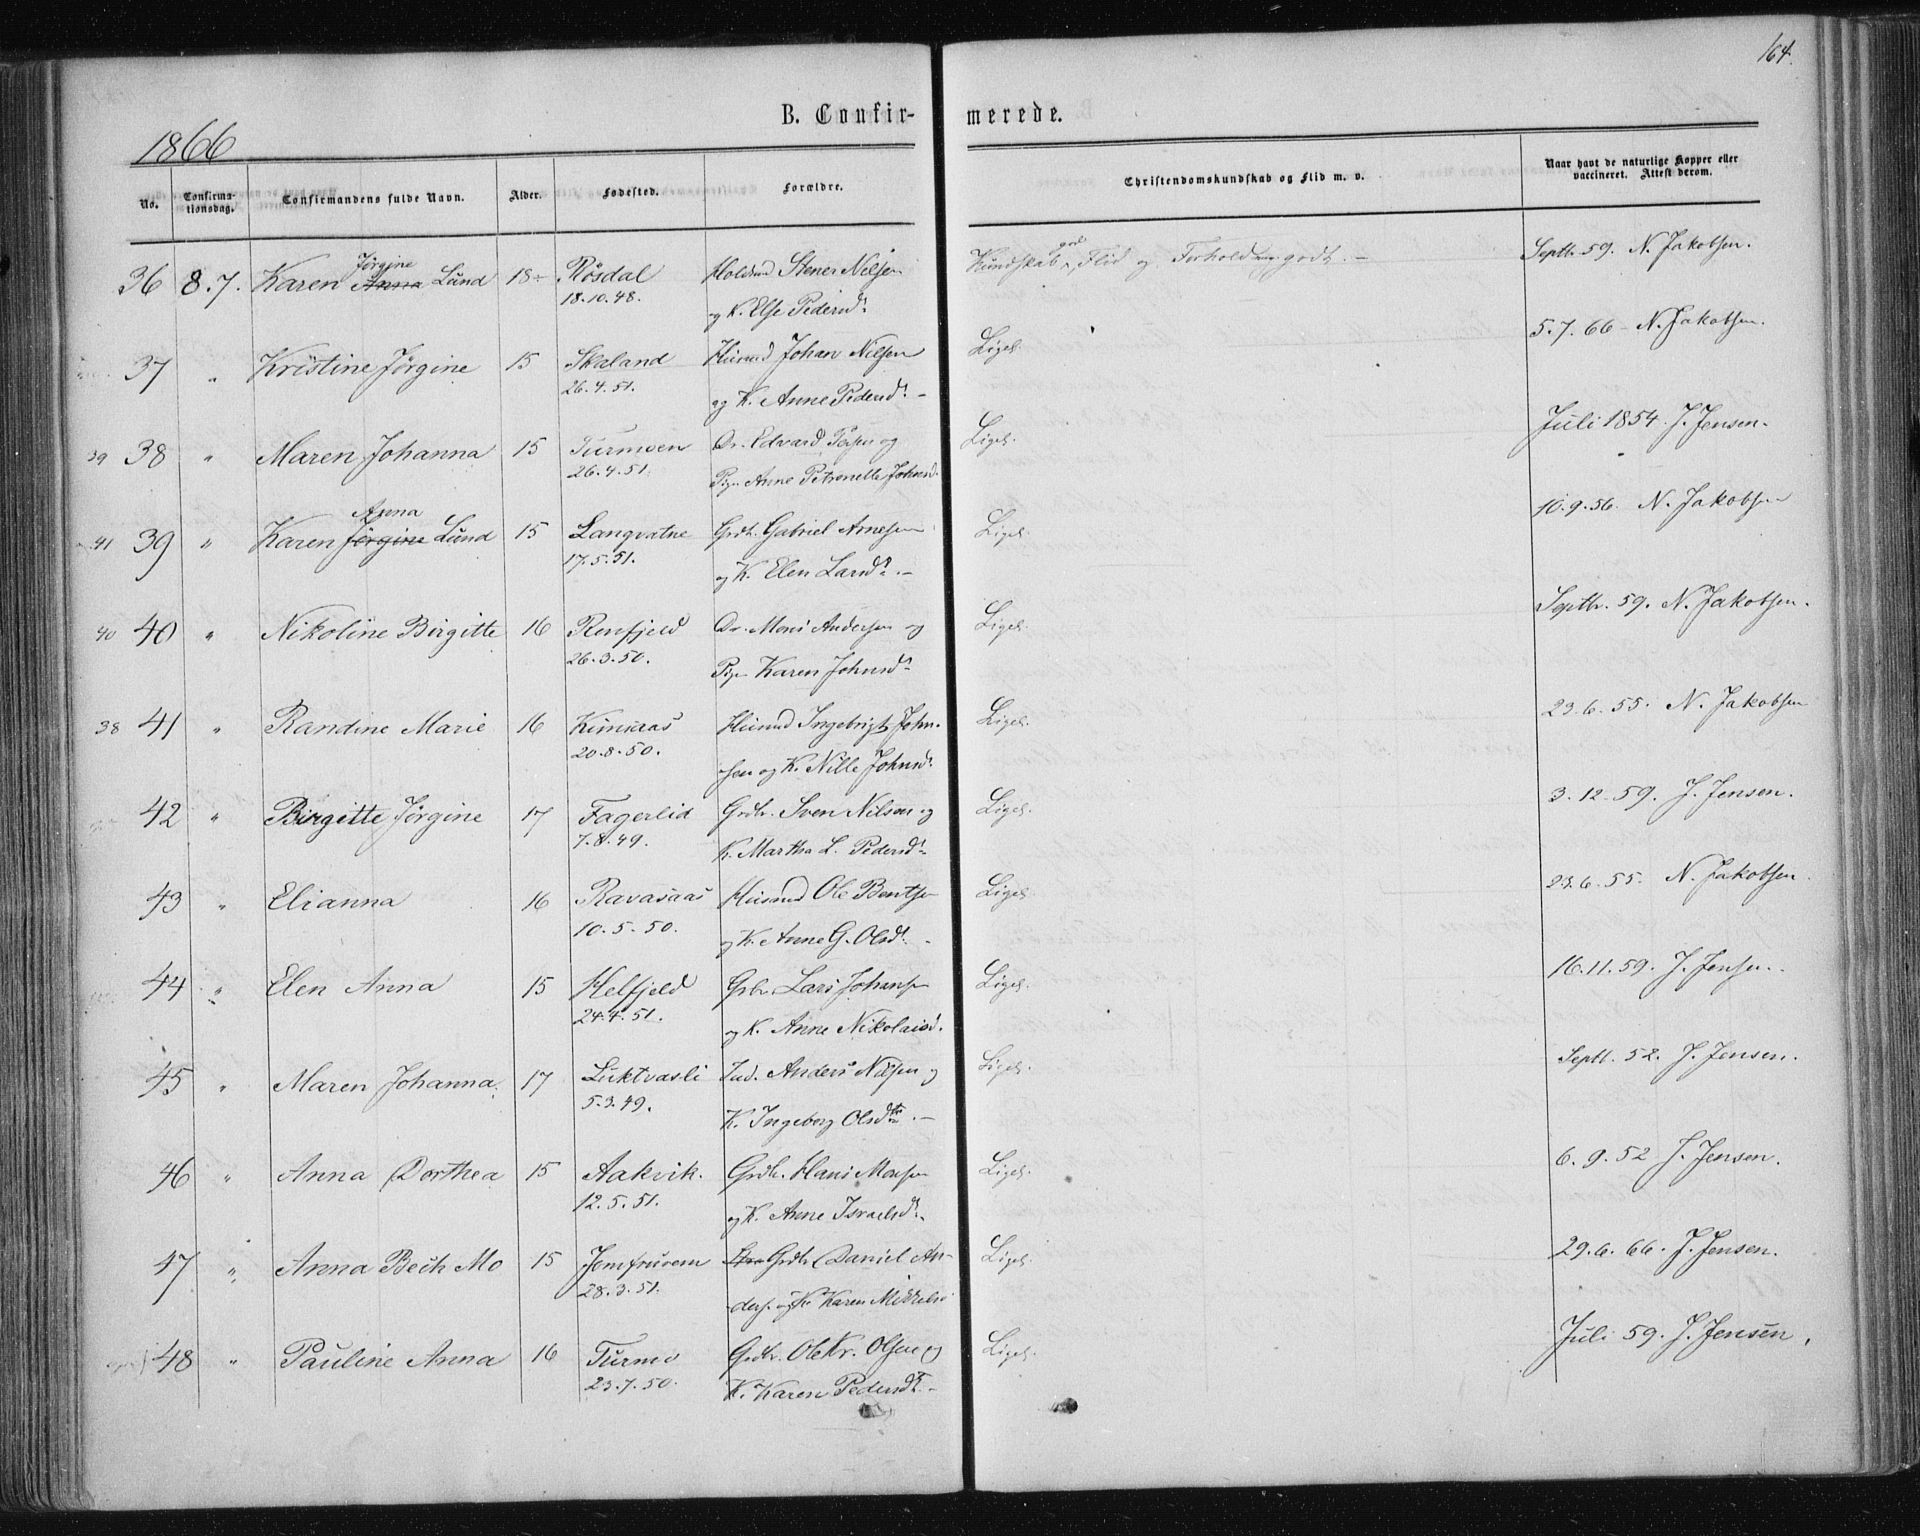 164.
B. Confir-
merede.
1866
No.
Confirma-
tionsdag.
Confirmandens fulde Navn.
Alder.
Fødested.
Forældre.
Christendomskundskab og Flid m. v.
Naar havt de naturlige Kopper eller
vaccineret. Attest derom.
Jörgine
36 8.7. Karen Anna Lund 18 Røsdal Stener Nilsen Kundskab god, Flid og Forhold godt. Septb. 59. N. Jakobsen.
18.10.48. og K. Else Pedersd.
37 " Kristine Jörgine 15 Skaland Husmd Johan Nilsen Liges. 5.7.66 - N. Jakobsen.
26.4.51. og K. Anne Pedersd. -
39 38 " Maren Johanna 15 Turmoen Edvard og Liges. Juli 1854. J. Jensen.
26.4.51. Pige Anne Petronelle Johnsd.
Anna
41 39 " Karen Jörgine Lund 15 Langvatne Grdb. Gabriel Arnesen Liges. 10.9.56. N. Jakobsen
17.5.51. og K. Elen Larsd. -
40 40 " Nikoline Birgitte 16 Renfjeld Mons Andersen og Liges. Septbr. 59. N. Jakobsen.
26.3.50. Pige Karen Johnsd.
38 41 " Randine Marie 16 Husmd Ingebrigt John- Liges. 23.6.55. N. Jakobsen
20.8.50. sen og K. Nille Johnsd.
42 " Birgitte Jörgine 17 Fagerlid Grdb. Sven Nilsen og Liges. 3.12.59. J. Jensen.
7.8.49. K. Martha L. Pedersd.
43 " Elianna 16 Ravasaas Husmd Ole Bentsen Liges. 23.6.55. N. Jakobsen.
10.5.50. og K. Anne G. Olsd. -
44 " Elen Anna 15 Helfjeld Grbr. Lars Johansen Liges. 16.11.59. J. Jensen.
24.4.51. og K. Anne Nikolaisd.
45 " Maren Johanna. 17 Luktvasli Ind. Anders og Liges. Septb. 52. J. Jensen.
5.3.49. K. Ingeborg Olsdtr. -
46 " Anna Dorthea 15 Aakvik. Grdbr. Hans Monsen Liges. 6.9.52 J. Jensen.
12.5.51. og K. Anne Israelsd.
47 " Anna Bech Mo 15 Jomfruven Grdbr Daniel An- Liges. 29.6.66. J. Jensen.
28.3.51. ders. og K. Karen Mikkelsd
48 " Pauline Anna 16 Turmo Grdbr. Ole Kr. Olsen og Liges. Juli 59. J. Jensen.
23.7.50. K. Karen Pedersd. -